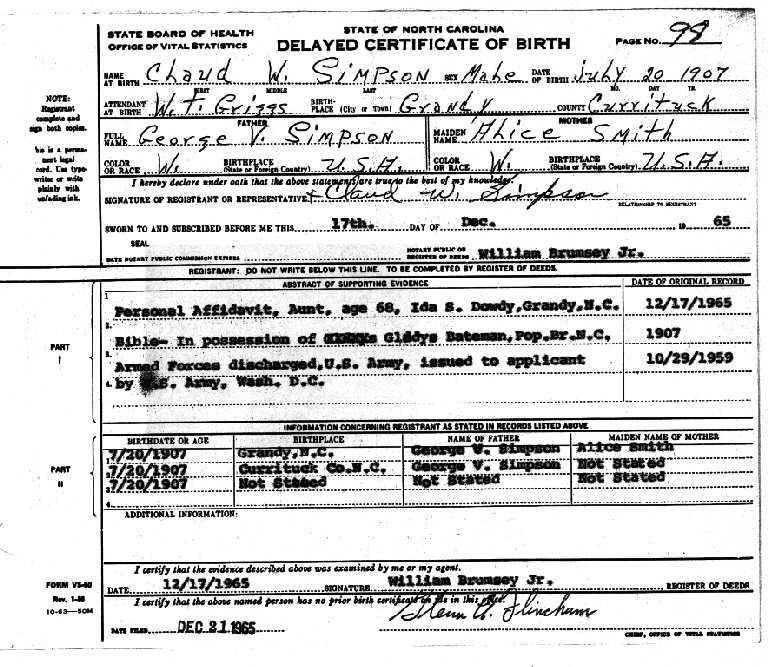 STATE BOARD OF HEALTH
OFFICE OF VITAL STATISTICS
STATE OF NORTH CAROLINA
DELAYED CERTIFICATE OF BIRTH
PAGE No. 98
NAME AT BIRTH Claud W. SIMPSON SEX Male DATE OF BIRTH July 20 1907
FIRST MIDDLE LAST MO. DAY YR.
ATTENDANT AT BIRTH W.T. Griggs BIRTH-PLACE (City or Town) Grandy COUNTY Currituck
FATHER MOTHER
FULL NAME George V. SIMPSON MAIDEN NAME Alice Smith
COLOR OR RACE W. BIRTHPLACE (State or Foreign Country) U.S.A. COLOR OR RACE W. BIRTHPLACE (State or Foreign Country) U.S.A.
I hereby declare under oath that the above statements are true to the best of my knowledge.
SIGNATURE OF REGISTRANT OR REPRESENTATIVE Claud W. Simpson
RELATIONSHIP TO REGISTRANT
SWORN TO AND SUBSCRIBED BEFORE ME THIS 17th. DAY OF Dec. 19 65
SEAL
DATE NOTARY PUBLIC COMMISSION EXPIRES NOTARY PUBLIC OR REGISTER OF DEEDS William Brumsey Jr.
NOTE:
Registrant
complete and
sign both copies.
his is a perma-
nent legal
cord. Use type-
writer or write
plainly with
unfading ink.
REGISTRANT: DO NOT WRITE BELOW THIS LINE. TO BE COMPLETED BY REGISTER OF DEEDS.
ABSTRACT OF SUPPORTING EVIDENCE DATE OF ORIGINAL RECORD
PART
I
1. Personal Affidavit, Aunt, age 68, Ida S. Dowdy, Grandy, N.C. 12/17/1965
2. Bible- In possession of Gladys Bateman, Pop.Br.N.C. 1907
3. Armed Forces discharged, U.S. Army, issued to applicant 10/29/1959
4. by U.S. Army, Wash. D.C.
INFORMATION CONCERNING REGISTRANT AS STATED IN RECORDS LISTED ABOVE
BIRTHDATE OR AGE BIRTHPLACE NAME OF FATHER MAIDEN NAME OF MOTHER
PART
II
7/20/1907 Grandy, N.C. George V. Simpson Alice Smith
2. 7/20/1907 Currituck Co.N.C. George V. Simpson Not Stated
3. 7/20/1907 Not Stated Not Stated Not Stated
4.
ADDITIONAL INFORMATION:
I certify that the evidence described above was examined by me or my agent.
DATE 12/17/1965 SIGNATURE William Brumsey Jr. REGISTER OF DEEDS
I certify that the above named person has no prior birth certificate on file in this office.
DATE FILED DEC 21 1965 Glenn A. Flinchum
CHIEF, OFFICE OF VITAL STATISTICS
FORM VS-60
Rev. 1-58
10-63-50M